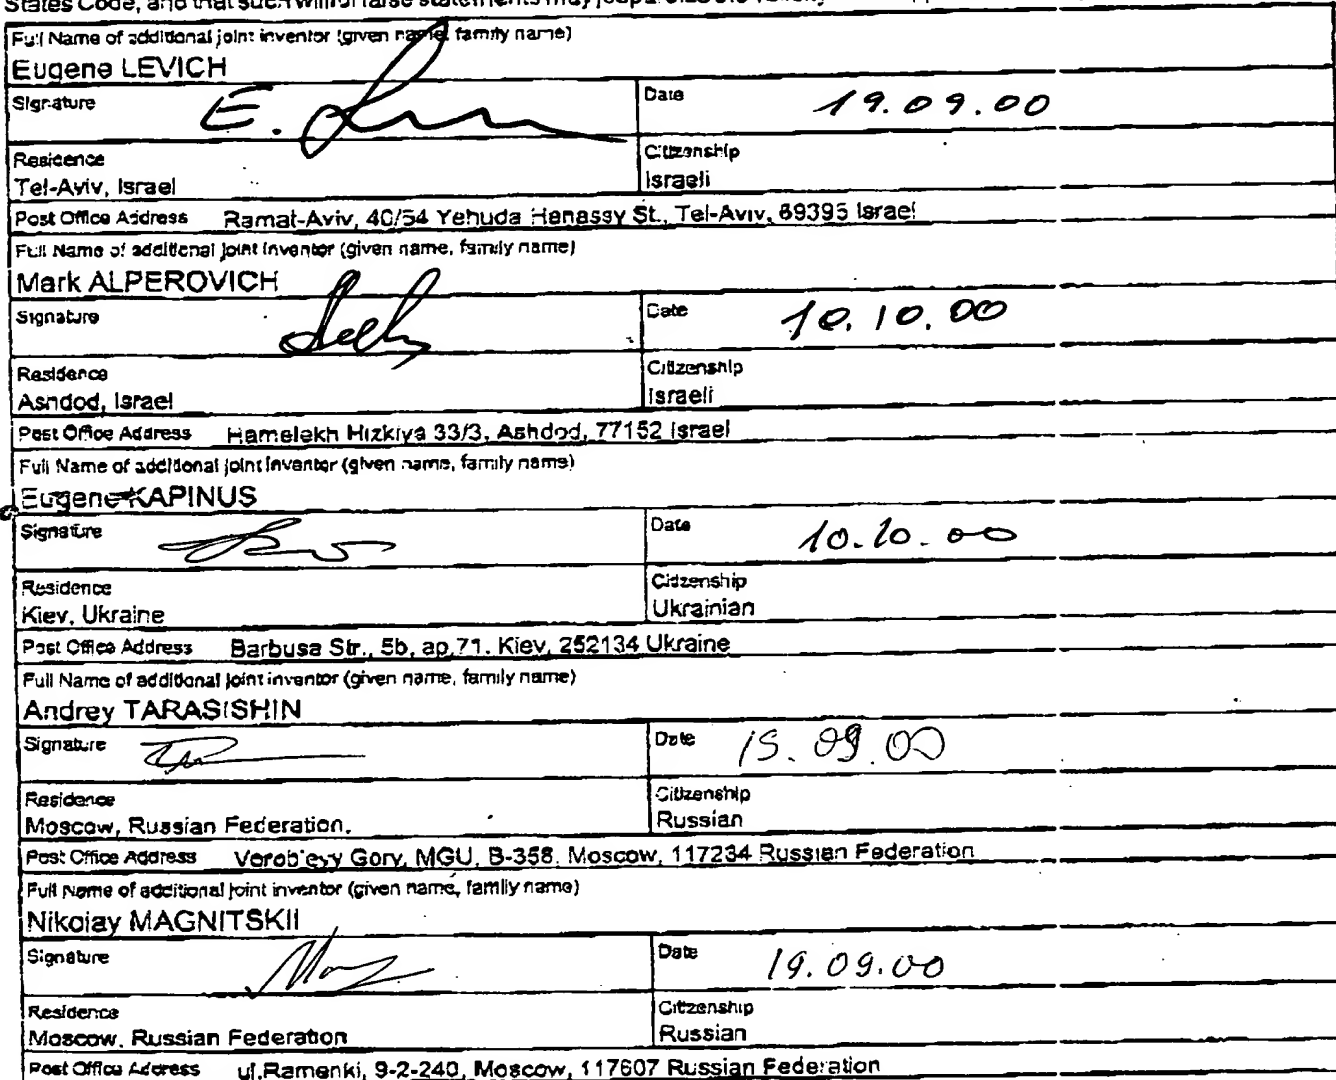 States Code, and that such willful false statements may
Full Name of additional joint inventor (given name, family name)
Eugene LEVICH
Signature E. Date 19.09.00
Residence Citizenship
Tel-Aviv, Israel Israeli
Post Office Address Ramat-Aviv, 40/54 Yehuda Hanassy St., Tel-Aviv, 69395 Israel
Full Name of additional joint inventor (given name, family name)
Mark ALPEROVICH
Signature Date 10.10.00
Residence Citizenship
Ashdod, Israel Israeli
Post Office Address Hamelekh Hizkiya 33/3, Ashdod, 77152 Israel
Full Name of additional joint inventor (given name, family name)
Eugene KAPINUS
Signature Date 10.10.00
Residence Citizenship
Kiev, Ukraine Ukrainian
Post Office Address Barbusa Str., 5b, ap.71. Kiev, 252134 Ukraine
Full Name of additional joint inventor (given name, family name)
Andrey TARASISHIN
Signature Date 15.09.00
Residence Citizenship
Moscow, Russian Federation. Russian
Post Office Address Vorob'evy Gory, MGU, B-358, Moscow, 117234 Russian Federation
Full Name of additional joint inventor (given name, family name)
Nikolay MAGNITSKII
Signature Date 19.09.00
Residence Citizenship
Moscow, Russian Federation Russian
Post Office Address ul.Ramenki, 9-2-240, Moscow, 117607 Russian Federation